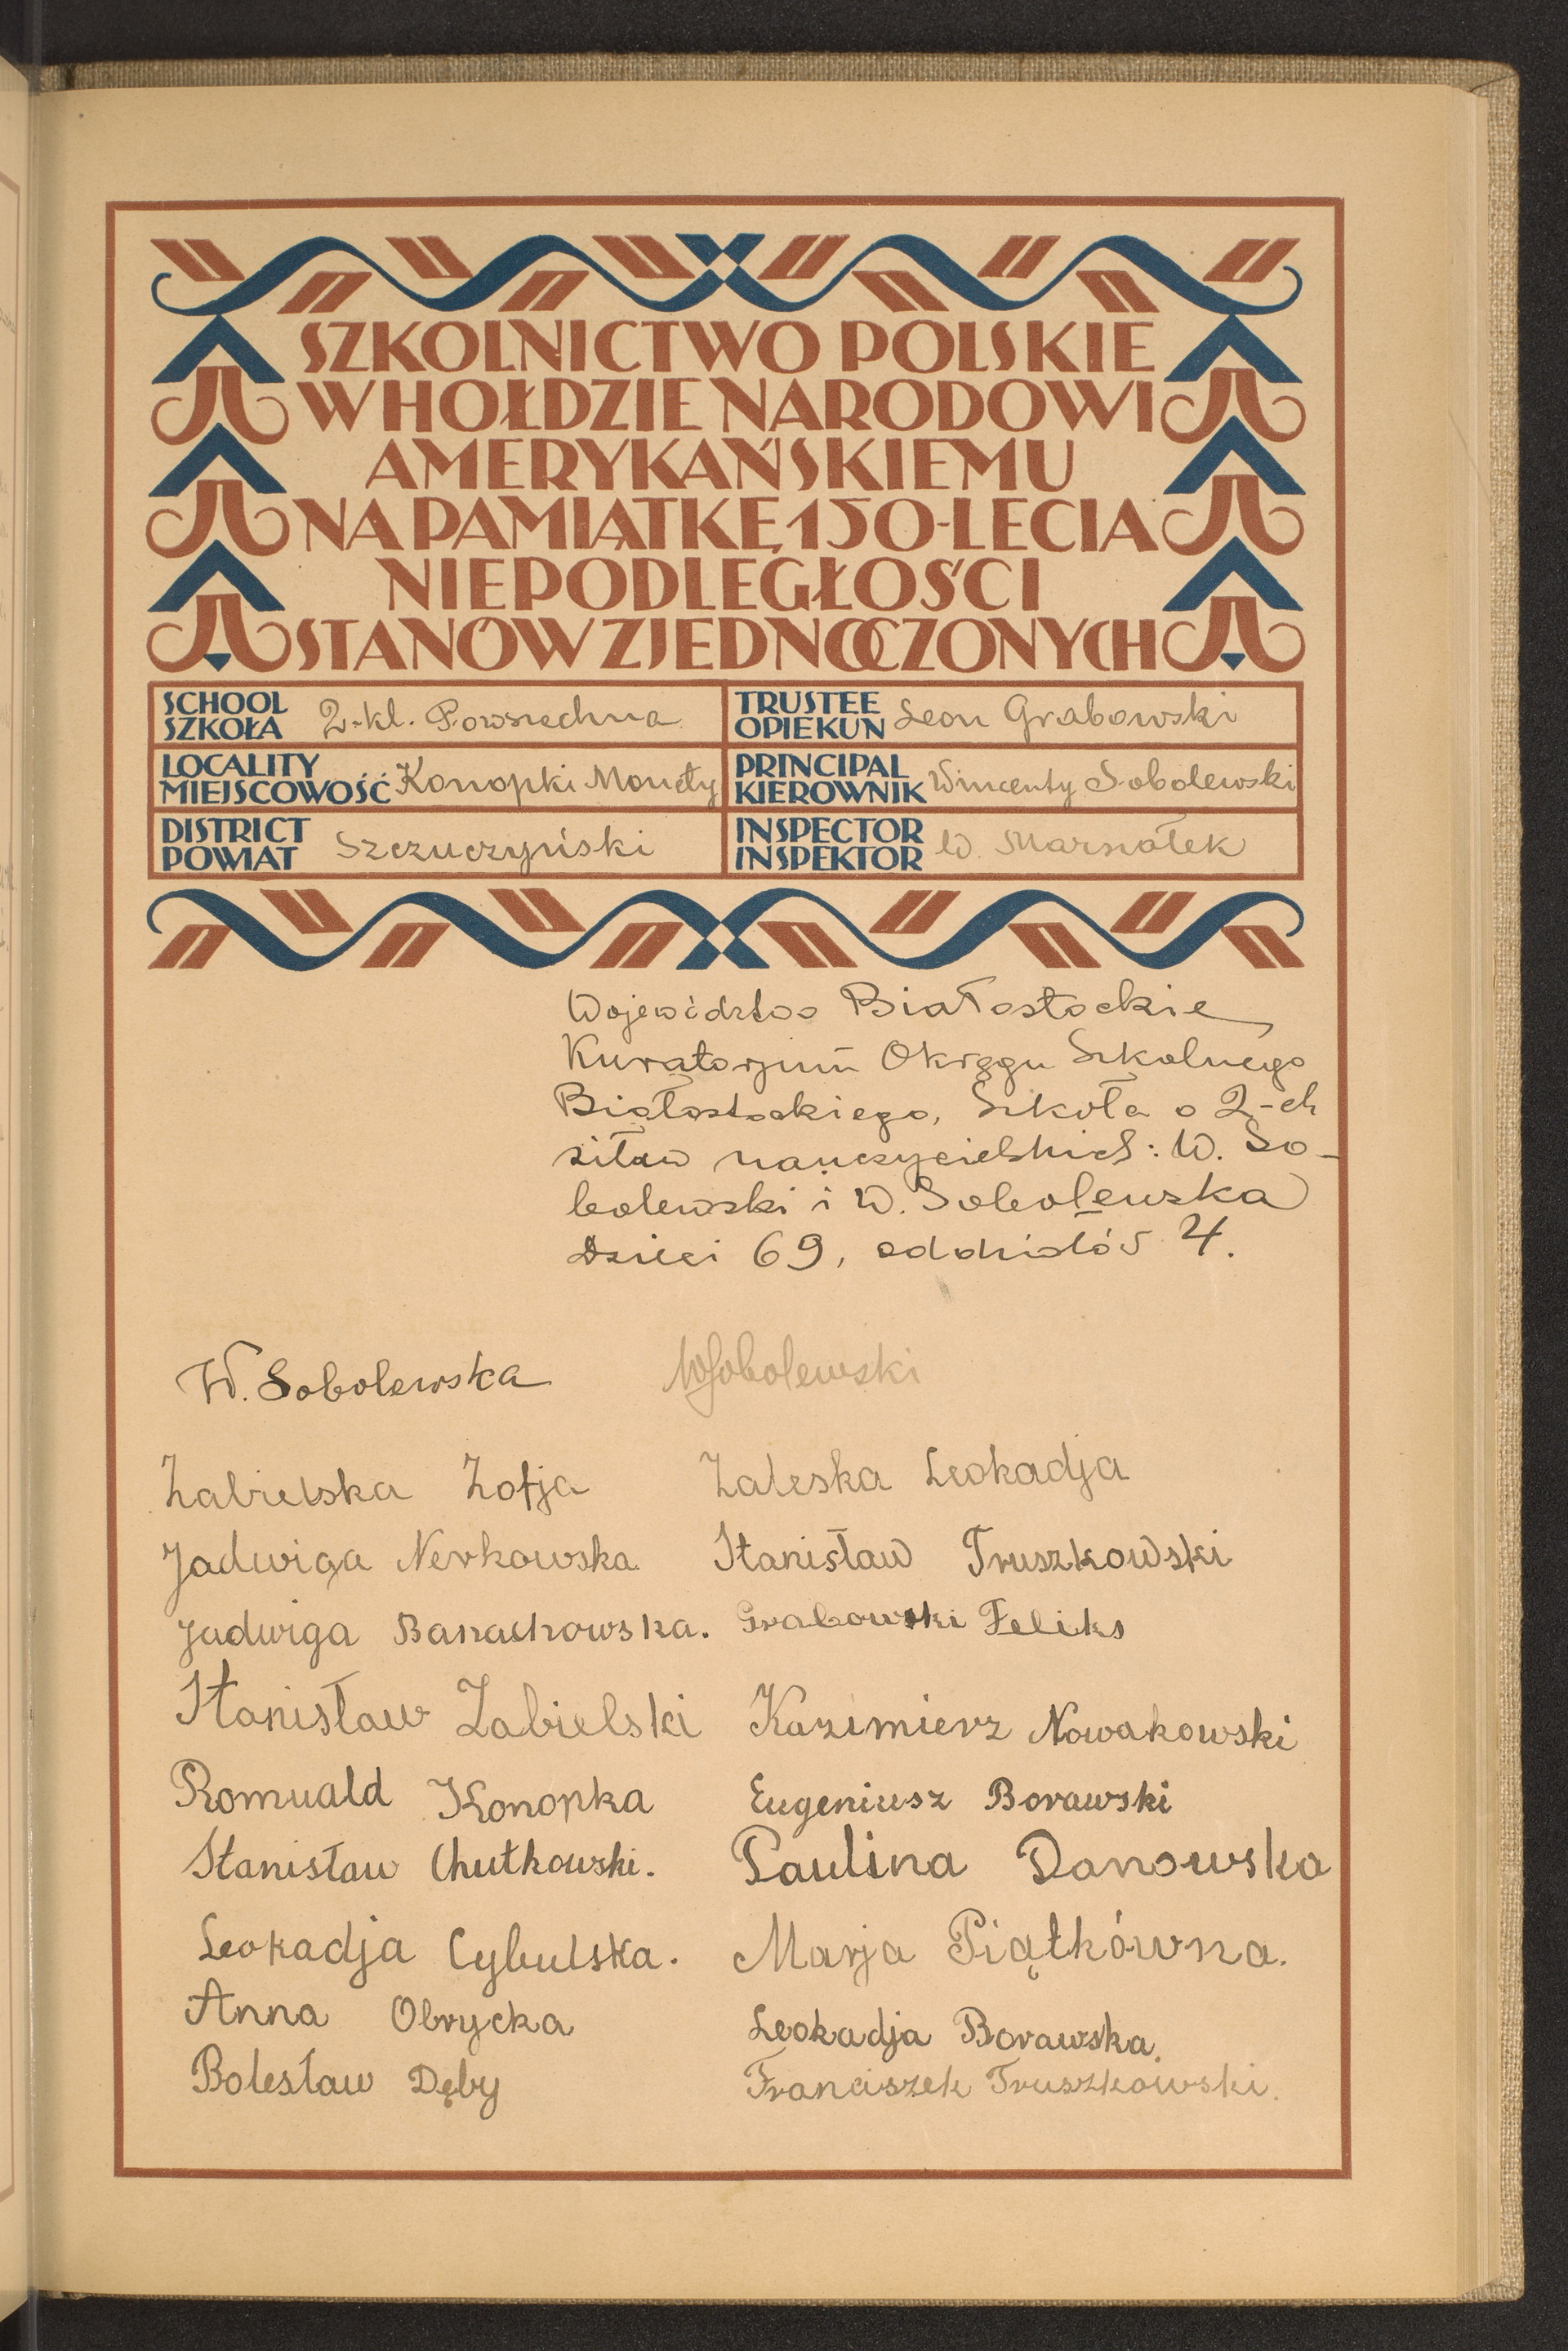 SZKOLNICTWO POLSKIE
W HOŁDZIE NARODOWI
AMERYKAŃSKIEMU
NA PAMIĄTKĘ 150-LECIA
NIEPODLEGŁOŚCI
STANÓW ZJEDNOCZONYCH
SCHOOL
SZKOŁA 2-kl. Powszechna
TRUSTEE
OPIEKUN Leon Grabowski
LOCALITY
MIEJSCOWOŚĆ Konopki Monety
PRINCIPAL
KIEROWNIK Wincenty Sobolewski
DISTRICT
POWIAT Szczuczyński
INSPECTOR
INSPEKTOR W. Marszałek
Województwo Białostockie
Kuratorjum Okręgu Szkolnego
Białostockiego, Szkoła o 2-ch
siław nauczycielskich: W. So-
bolewski i W. Sobolewska
Dzieci 69, oddziałów 4.
W. Sobolewska WSobolewski
Zabielska Zofja Zaleska Leokadja
Jadwiga Nerkowska Stanisław Truszkowski
Jadwiga Banachowska. Grabowski Feliks
Stanisław Zabielski Kazimierz Nowakowski
Romuald Konopka Eugeniusz Borawski
Stanisław Chutkowski. Paulina Danowska
Leokadja Cybulska. Marja Piątkówna.
Anna Obrycka Leokadja Borawska.
Bolesław Dęby Franciszek Truszkowski.